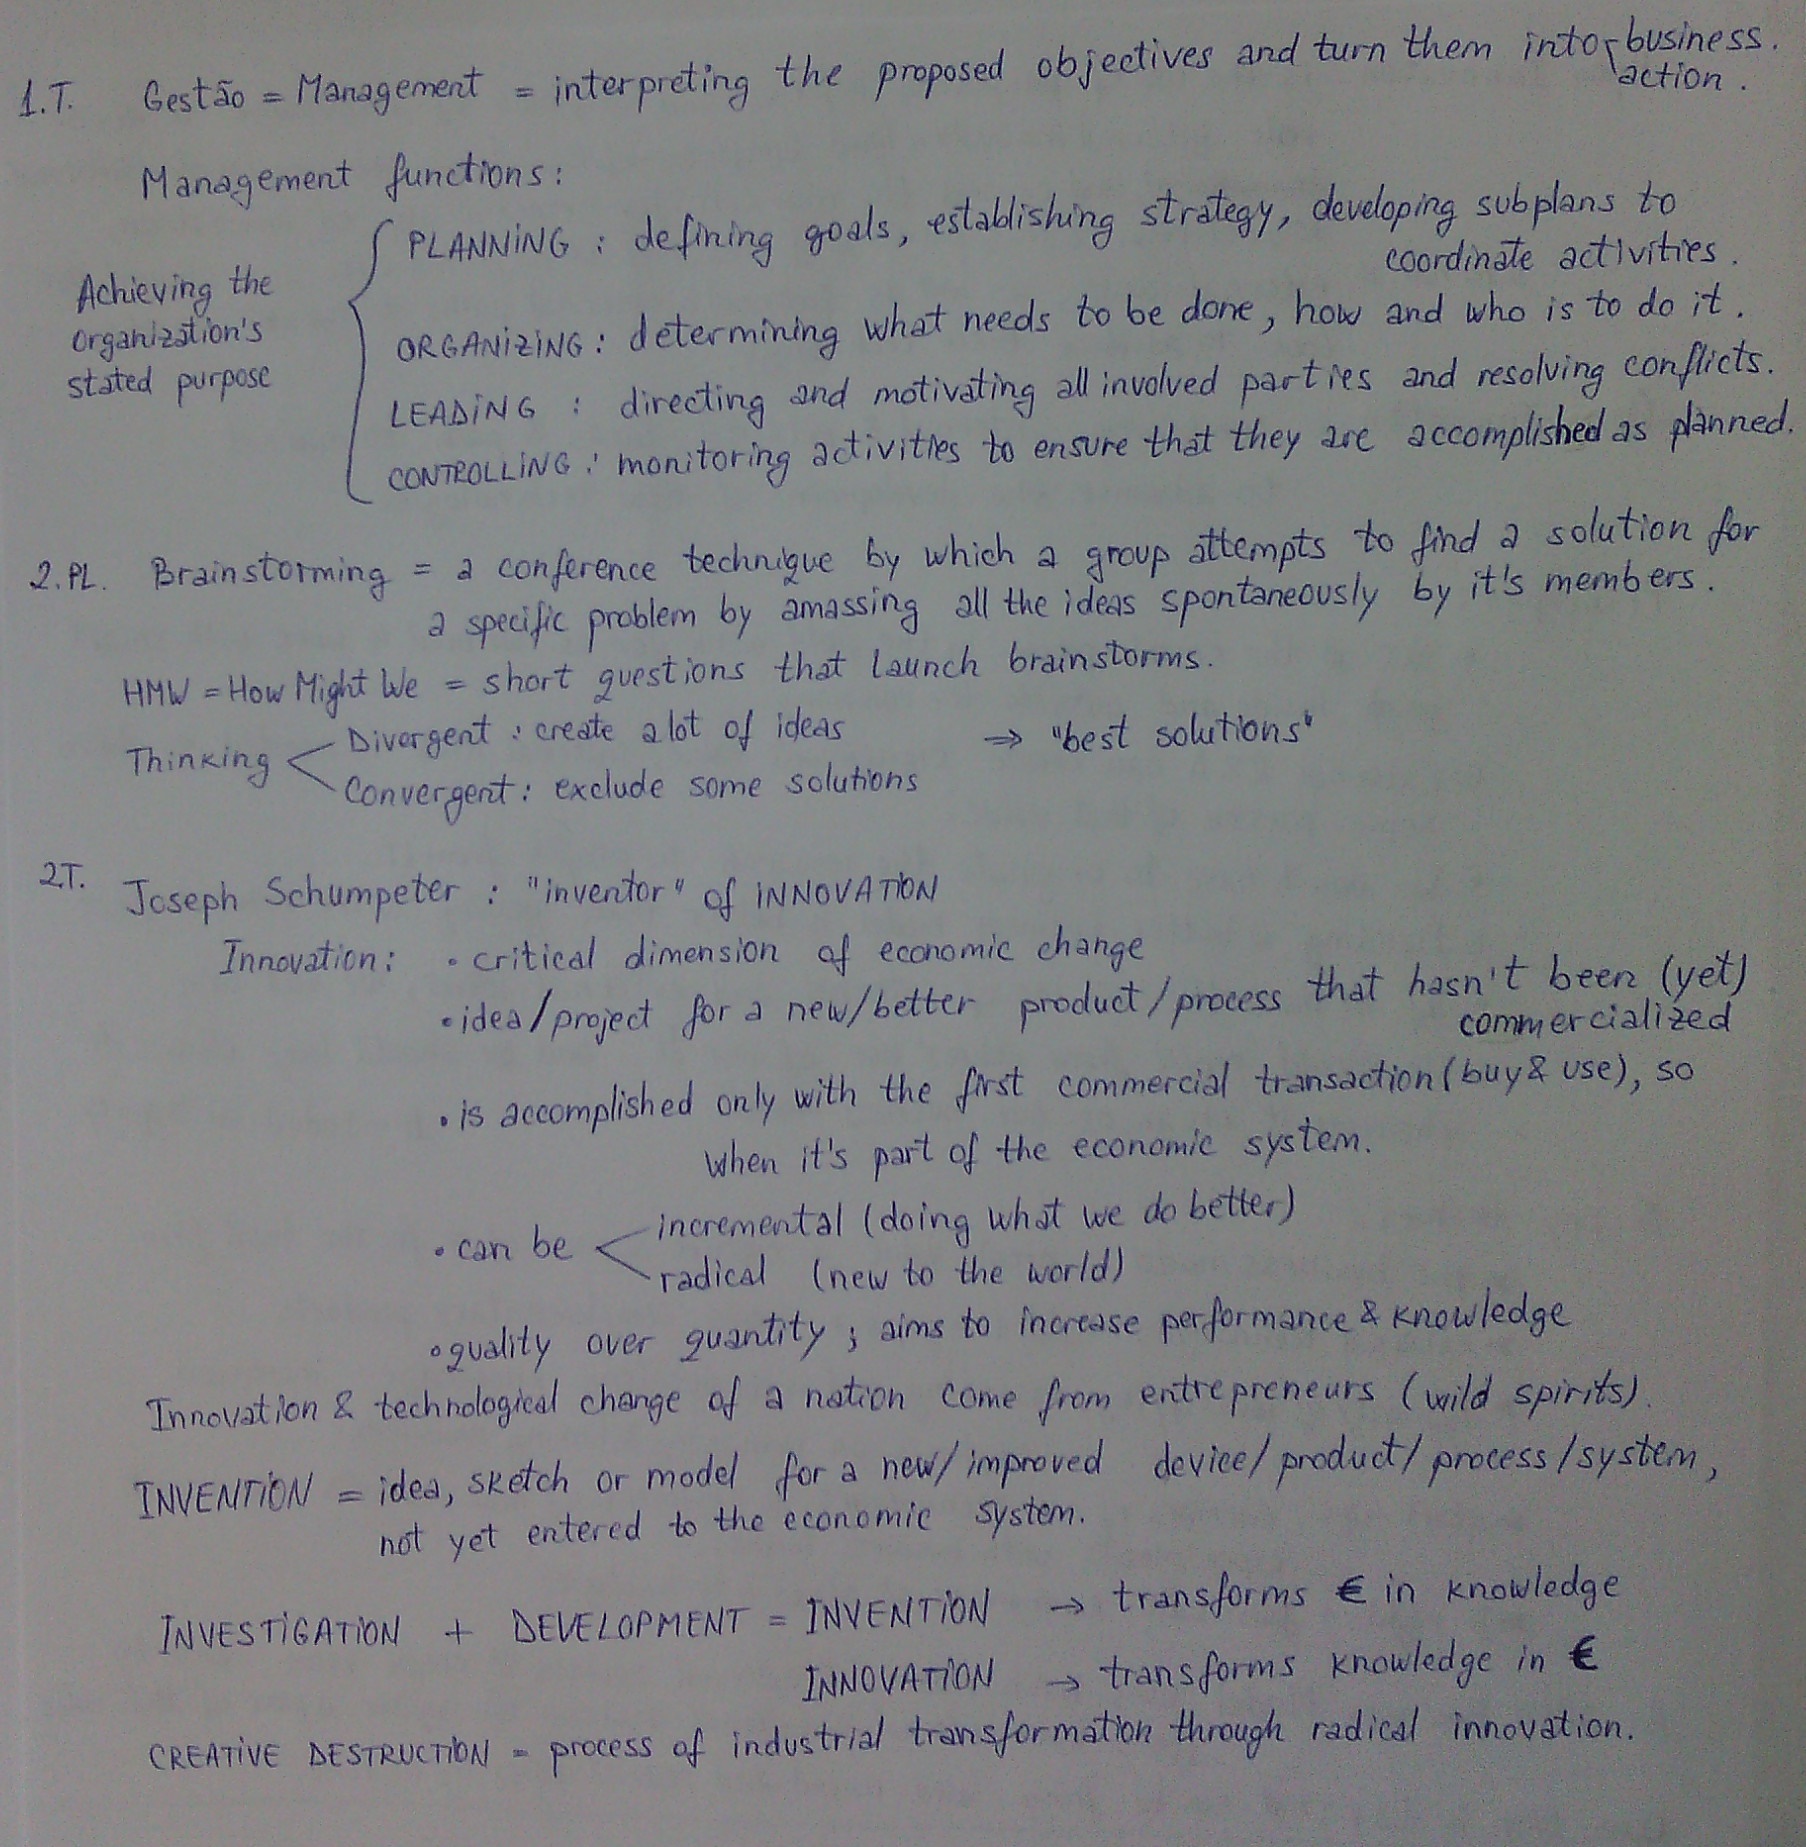 1.T. Gestão = Management = interpreting the proposed objectives and turn them into business.
action.
Management functions:
Achieving the
organization's
stated purpose
PLANNING: defining goals, establishing strategy, developing subplans to
coordinate activities.
ORGANIZING: determining what needs to be done, how and who is to do it.
LEADING: directing and motivating all involved parties and resolving conflicts.
CONTROLLING: monitoring activities to ensure that they are accomplished as planned.
2.PL. Brainstorming = a conference technique by which a group attempts to find a solution for
a specific problem by amassing all the ideas spontaneously by it's members.
HMW = How Might We = short questions that launch brainstorms.
Thinking < Divergent: create a lot of ideas ⇒ "best solutions"
Convergent: exclude some solutions
2T. Joseph Schumpeter: "inventor" of INNOVATION
Innovation: • critical dimension of economic change
• idea/project for a new/better product/process that hasn't been (yet)
commercialized
• is accomplished only with the first commercial transaction (buy & use), so
when it's part of the economic system.
• can be < incremental (doing what we do better)
radical (new to the world)
• quality over quantity; aims to increase performance & knowledge
Innovation & technological change of a nation come from entrepreneurs (wild spirits).
INVENTION = idea, sketch or model for a new/improved device/product/process/system,
not yet entered to the economic system.
INVESTIGATION + DEVELOPMENT = INVENTION → transforms € in knowledge
INNOVATION → transforms knowledge in €
CREATIVE DESTRUCTION = process of industrial transformation through radical innovation.